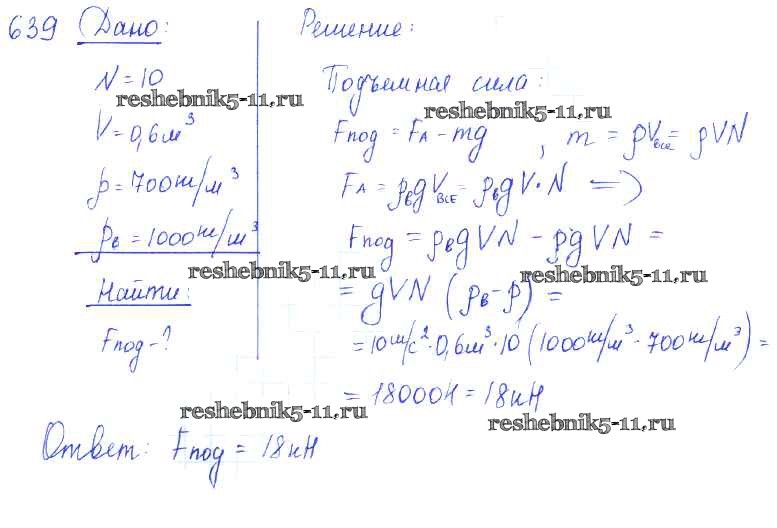 639 Дано:
N = 10
V = 0,6 м³
ρ = 700 кг/м³
ρв = 1000 кг/м³
Найти:
Fпод - ?
Решение:
Подъемная сила:
Fпод = FА - mg , m = ρVвсе = ρVN
FА = ρвgVвсе = ρвgV·N =>
Fпод = ρвgVN - ρgVN =
= gVN (ρв - ρ) =
= 10 м/с² · 0,6 м³ · 10 (1000 кг/м³ - 700 кг/м³) =
= 18000 Н = 18 кН
Ответ: Fпод = 18 кН
reshebnik5-11.ru
reshebnik5-11.ru
reshebnik5-11.ru
reshebnik5-11.ru
reshebnik5-11.ru
reshebnik5-11.ru